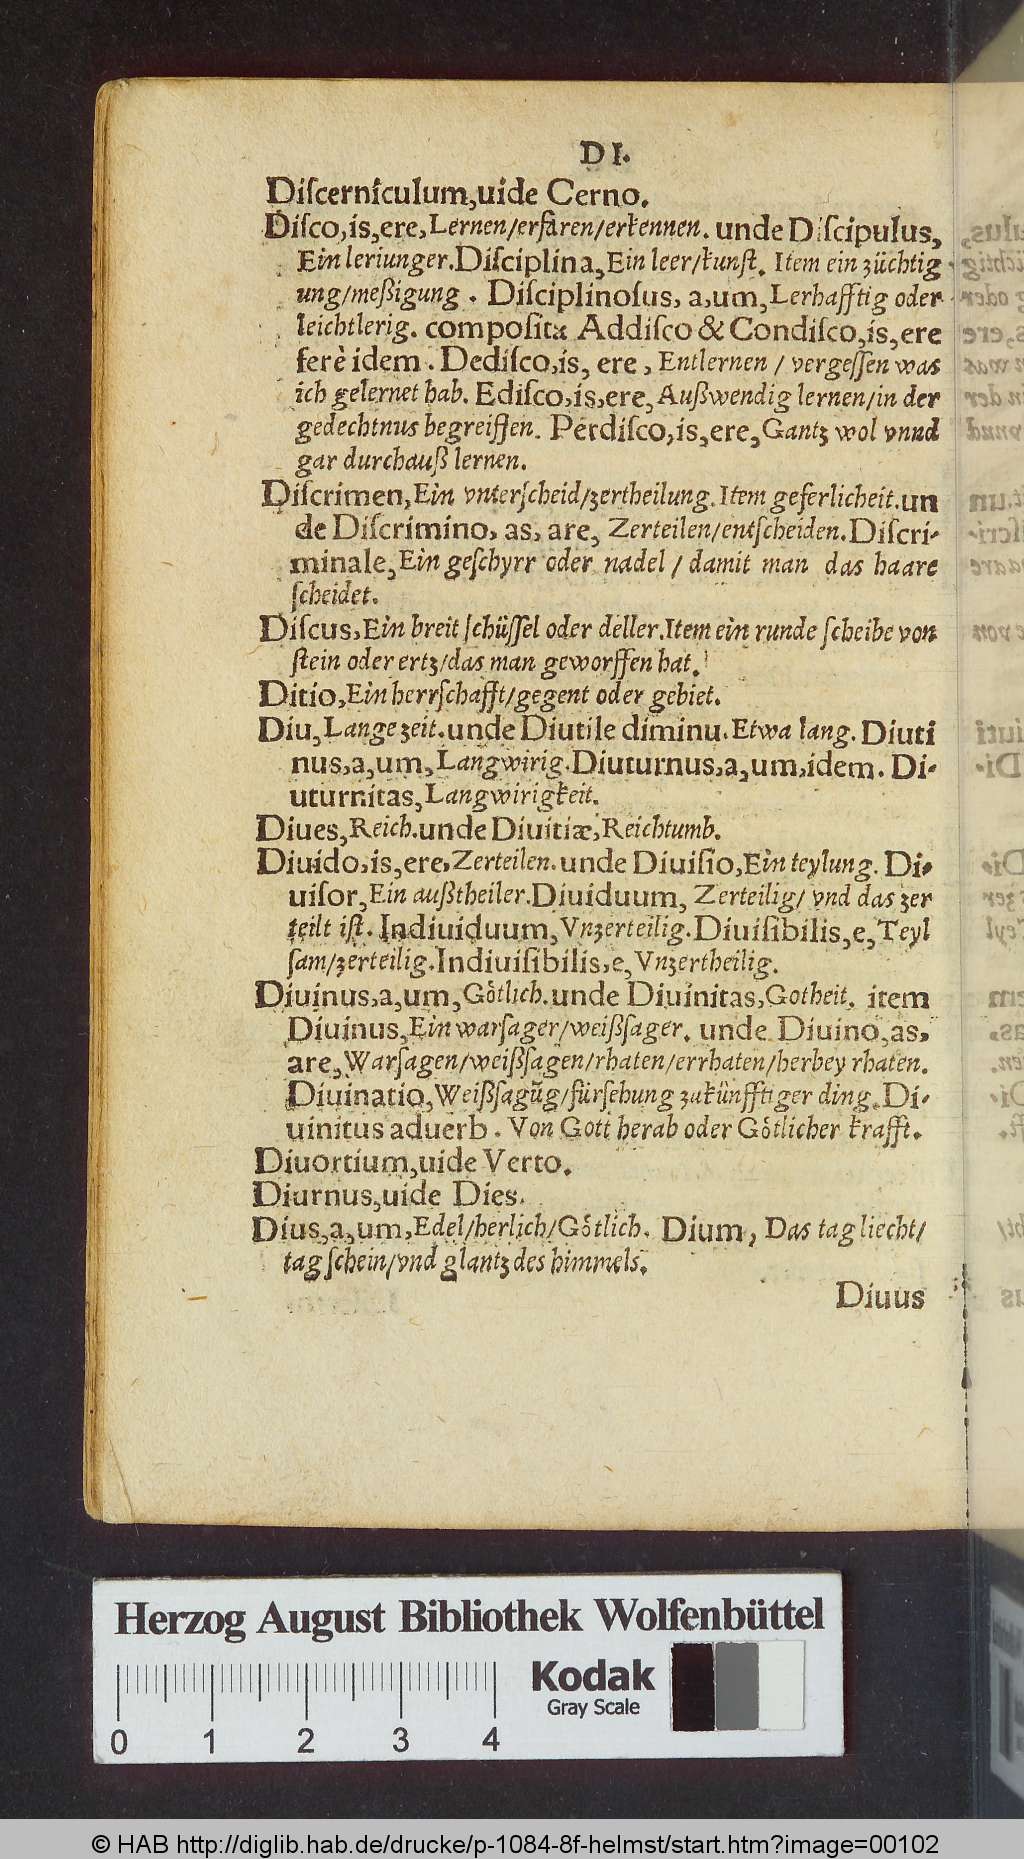 DI.
Diſcerniculum, uide Cerno.
Diſco, is, ere, Lernen/erfaren/erkennen. unde Diſcipulus,
Ein leriunger. Diſciplina, Ein leer/kunſt. Item ein züchtig
ung/meßigung. Diſciplinoſus, a, um, Lerhafftig oder
leichtlerig. compoſita Addiſco & Condiſco, is, ere
ferè idem. Dediſco, is, ere, Entlernen / vergeſſen was
ich gelernet hab. Ediſco, is, ere, Außwendig lernen/in der
gedechtnus begreiffen. Perdiſco, is, ere, Gantz wol vnnd
gar durchauß lernen.
Diſcrimen, Ein vnterſcheid/zertheilung. Item geferlicheit. un
de Diſcrimino, as, are, Zerteilen/entſcheiden. Diſcri-
minale, Ein geſchyrr oder nadel / damit man das haare
ſcheidet.
Diſcus, Ein breit ſchüſſel oder deller. Item ein runde ſcheibe von
ſtein oder ertz/das man geworffen hat.
Ditio, Ein herrſchafft/gegent oder gebiet.
Diu, Lange zeit. unde Diutile diminu. Etwa lang. Diuti
nus, a, um, Langwirig. Diuturnus, a, um, idem. Di-
uturnitas, Langwirigkeit.
Diues, Reich. unde Diuitiæ, Reichtumb.
Diuido, is, ere, Zerteilen. unde Diuiſio, Ein teylung. Di-
uiſor, Ein außtheiler. Diuiduum, Zerteilig/ vnd das zer
teilt iſt. Indiuiduum, Vnzerteilig. Diuiſibilis, e, Teyl
ſam/zerteilig. Indiuiſibilis, e, Vnzertheilig.
Diuinus, a, um, Götlich. unde Diuinitas, Gotheit. item
Diuinus, Ein warſager/weißſager. unde Diuino, as,
are, Warſagen/weißſagen/rhaten/errhaten/herbey rhaten.
Diuinatio, Weißſagũg/fürſehung zukünfftiger ding. Di-
uinitus aduerb. Von Gott herab oder Götlicher krafft.
Diuortium, uide Verto.
Diurnus, uide Dies.
Dius, a, um, Edel/herlich/Götlich. Dium, Das tag liecht/
tag ſchein/vnd glantz des himmels.
Diuus
Herzog August Bibliothek Wolfenbüttel
Kodak
Gray Scale
0 1 2 3 4
© HAB http://diglib.hab.de/drucke/p-1084-8f-helmst/start.htm?image=00102